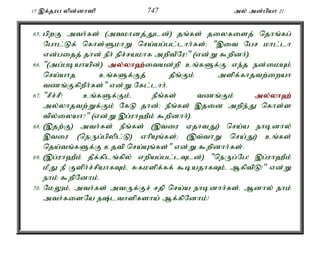 17 இக்தரப லின்னாஸி 747 அல் அன்பியா 21
65. பிறகு அவர்கள் (அவமானத்துடன்) தங்கள் தலைகளைத் தொங்கப்
போட்டுக் கொள்ளுமாறு செய்யப்பட்டார்கள்; "இவை பேச மாட்டா
என்பதைத் தான் நீர் நிச்சயமாக அறிவீரே!" (என்று கூறினர்).
66. "(அப்படியாயின்) அல்லாஹ்வையன்றி உங்களுக்கு எந்த நன்மையும்
செய்யாத உங்களுக்குத் தீங்கும் அளிக்காதவற்றையா
வணங்குகிறீர்கள்" என்று கேட்டார்.
67. "சீச்சீ! உங்களுக்கும், நீங்கள் வணங்கும் அல்லாஹ்
அல்லாதவற்றுக்கும் கேடு தான்; நீங்கள் இதனை அறிந்து கொள்ள
வில்லையா!" (என்று இப்ராஹீம் கூறினார்).
68. (இதற்கு) அவர்கள் நீங்கள் (இவரை ஏதாவது) செய்ய நாடினால்
இவரை (நெருப்பிலிட்டு) எரியுங்கள்; (இவ்வாறு செய்து) உங்கள்
தெய்வங்களுக்கு உதவி செய்யுங்கள்" என்று கூறினார்கள்.
69. (இப்ராஹீம் தீக்கிடங்கில் எறியப்பட்டவுடன்) "நெருப்பே! இப்ராஹீம்
மீது நீ குளிர்ச்சியாகவும், சுகமளிக்கக் கூடியதாகவும், ஆகிவிடு!" என்று
நாம் கூறினோம்.
70. மேலும், அவர்கள் அவருக்குச் சதி செய்ய நாடினார்கள், ஆனால் நாம்
அவர்களையே நஷ்டவாளிகளாய் ஆக்கினோம்!